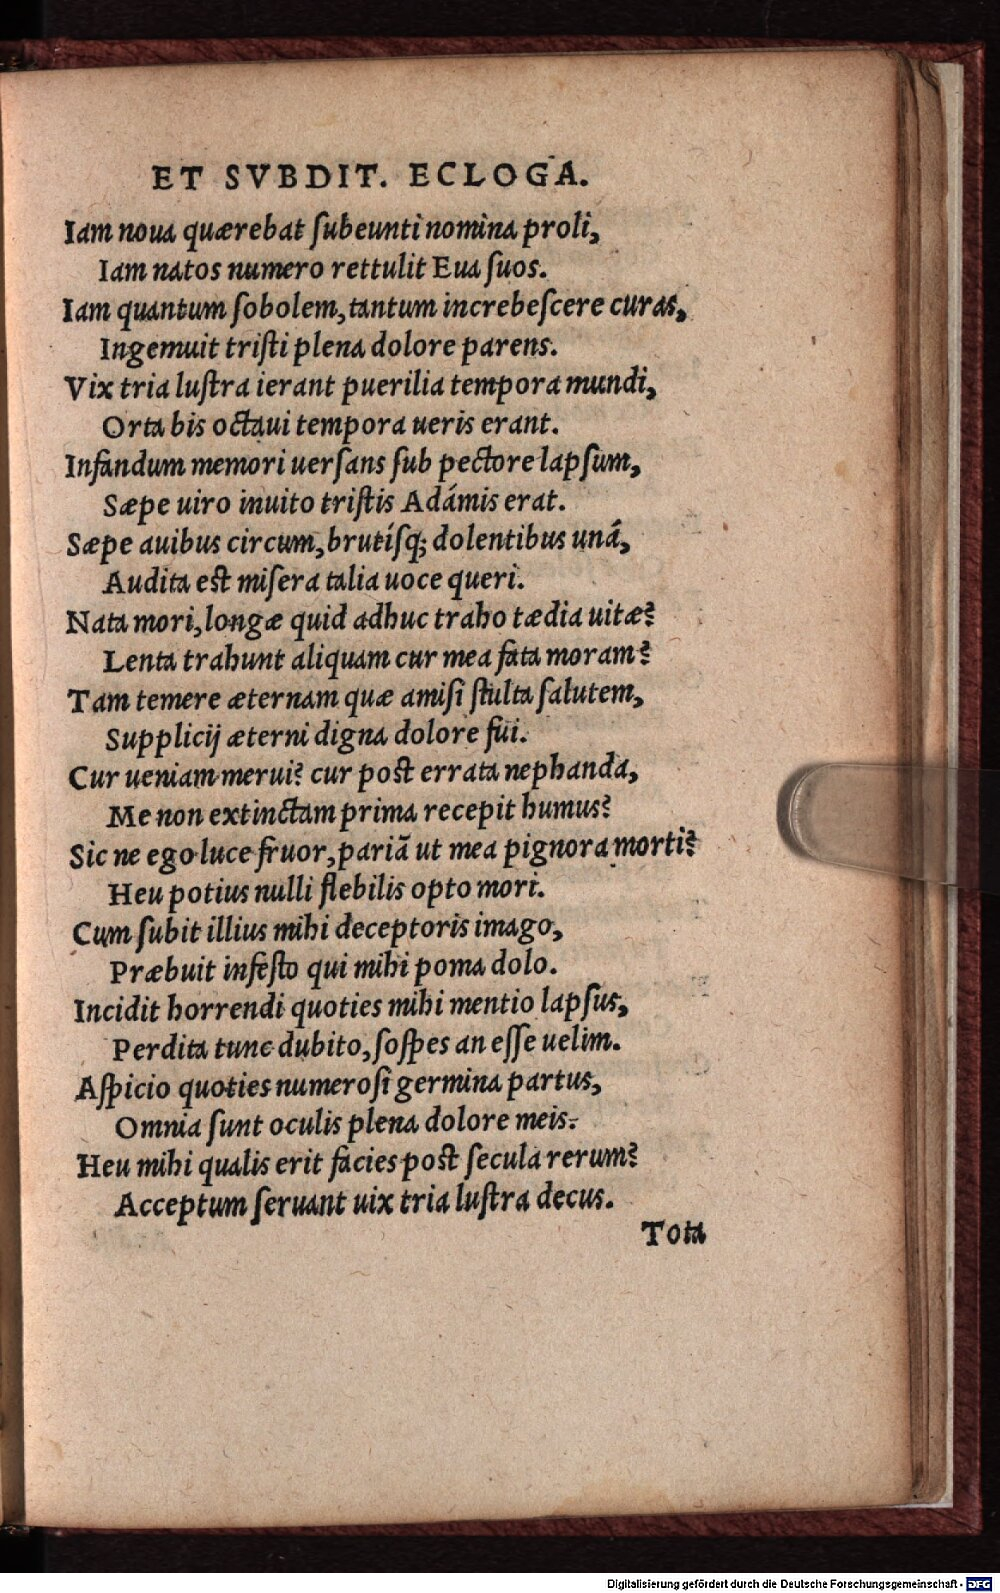 ET SVBDIT. ECLOGA.
Iam noua quærebat ſubeunti nomina proli,
Iam natos numero rettulit Eua ſuos.
Iam quantum ſobolem, tantum increbeſcere curas,
Ingemuit triſti plena dolore parens.
Vix tria luſtra ierant puerilia tempora mundi,
Orta bis octaui tempora ueris erant.
Infandum memori uerſans ſub pectore lapſum,
Sæpe uiro inuito triſtis Adámis erat.
Sæpe auibus circum, brutíſq; dolentibus unà,
Audita eſt miſera talia uoce queri.
Nata mori, longæ quid adhuc traho tædia uitæ?
Lenta trahunt aliquam cur mea fata moram?
Tam temere æternam quæ amiſi ſtulta ſalutem,
Supplicij æterni digna dolore fui.
Cur ueniam merui? cur poſt errata nephanda,
Me non extinctam prima recepit humus?
Sic ne ego luce fruor, pariã ut mea pignora morti?
Heu potius nulli flebilis opto mori.
Cum ſubit illius mihi deceptoris imago,
Præbuit infeſto qui mihi poma dolo.
Incidit horrendi quoties mihi mentio lapſus,
Perdita tunc dubito, ſoſpes an eſſe uelim.
Aſpicio quoties numeroſi germina partus,
Omnia ſunt oculis plena dolore meis.
Heu mihi qualis erit facies poſt ſecula rerum?
Acceptum ſeruant uix tria luſtra decus.
Tota
Digitalisierung gefördert durch die Deutsche Forschungsgemeinschaft - DFG